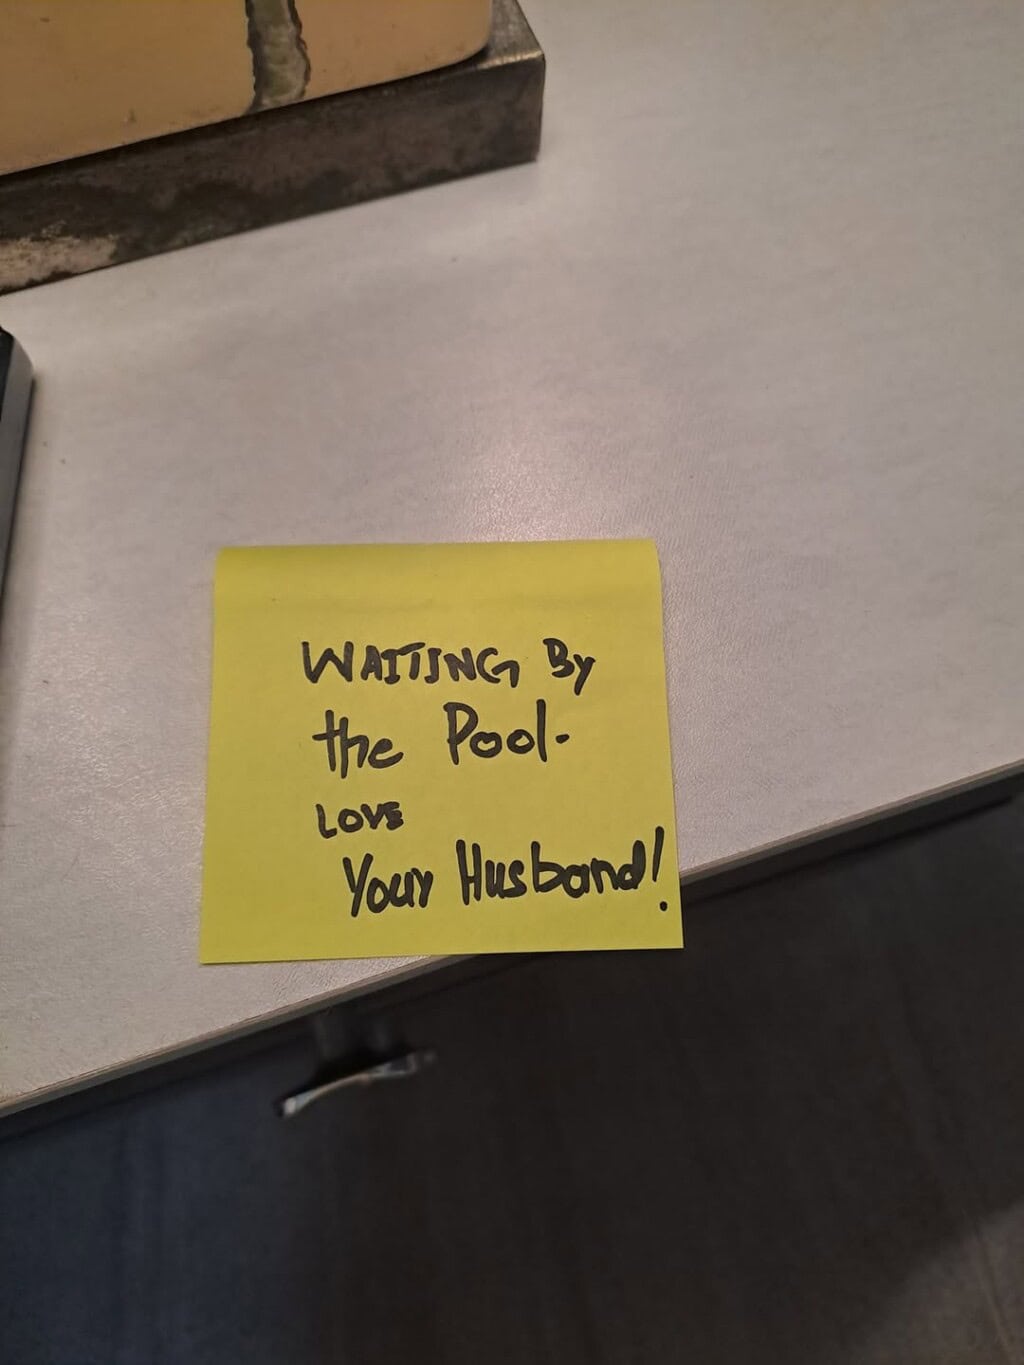 WAITING By
the Pool.
LOVE
Your Husband!